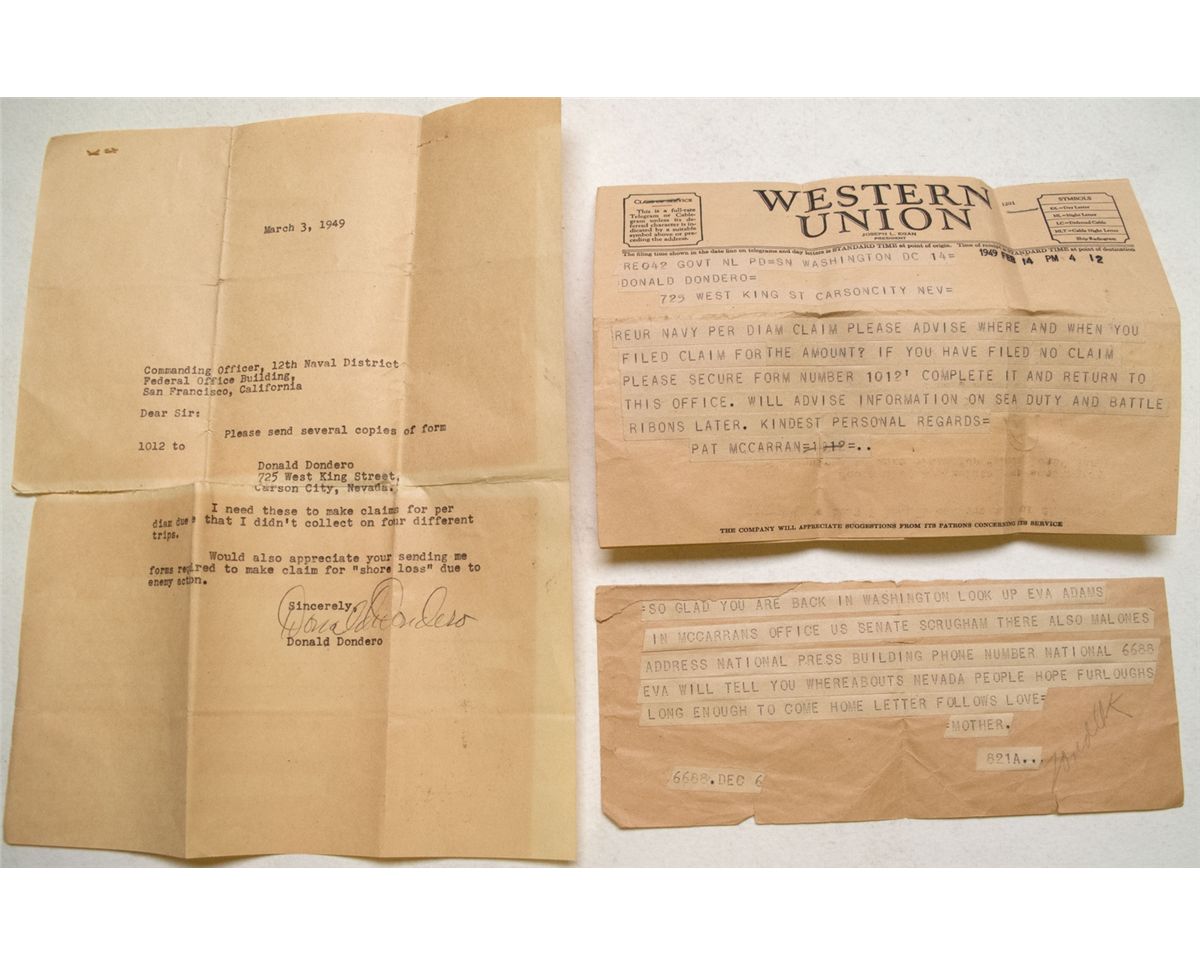 March 3, 1949
Commanding Officer, 12th Naval District
Federal Office Building,
San Francisco, California
Dear Sir:
Please send several copies of form
1012 to
Donald Dondero
725 West King Street,
Carson City, Nevada.
I need these to make claims for per
diam due that I didn't collect on four different
trips.
Would also appreciate your sending me
forms required to make claim for "shore loss" due to
enemy action.
Sincerely,
Donald Dondero
Donald Dondero
CLASS OF SERVICE
This is a full-rate
Telegram or Cable-
gram unless its de-
ferred character is in-
dicated by a suitable
symbol above or pre-
ceding the address.
WESTERN
UNION
JOSEPH L. EGAN
PRESIDENT
1201
SYMBOLS
DL=Day Letter
NL=Night Letter
LC=Deferred Cable
NLT=Cable Night Letter
Ship Radiogram
The filing time shown in the date line on telegrams and day letters is STANDARD TIME at point of origin. Time of receipt is STANDARD TIME at point of destination
1949 FEB 14 PM 4 12
RE042 GOVT NL PD=SN WASHINGTON DC 14=
DONALD DONDERO=
725 WEST KING ST CARSONCITY NEV=
REUR NAVY PER DIAM CLAIM PLEASE ADVISE WHERE AND WHEN YOU
FILED CLAIM FOR THE AMOUNT? IF YOU HAVE FILED NO CLAIM
PLEASE SECURE FORM NUMBER 1012' COMPLETE IT AND RETURN TO
THIS OFFICE. WILL ADVISE INFORMATION ON SEA DUTY AND BATTLE
RIBONS LATER. KINDEST PERSONAL REGARDS=
PAT MCCARRAN=1012=..
THE COMPANY WILL APPRECIATE SUGGESTIONS FROM ITS PATRONS CONCERNING ITS SERVICE
=SO GLAD YOU ARE BACK IN WASHINGTON LOOK UP EVA ADAMS
IN MCCARRANS OFFICE US SENATE SCRUGHAM THERE ALSO MALONES
ADDRESS NATIONAL PRESS BUILDING PHONE NUMBER NATIONAL 6688
EVA WILL TELL YOU WHEREABOUTS NEVADA PEOPLE HOPE FURLOUGHS
LONG ENOUGH TO COME HOME LETTER FOLLOWS LOVE=
=MOTHER.
821A..
6688.DEC 6